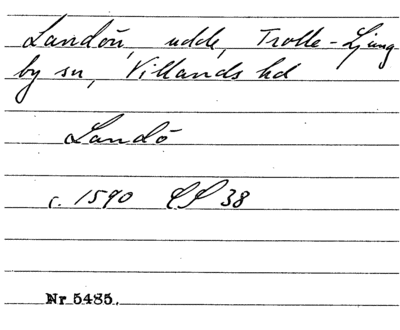 Landön, udde, Trolle-Ljung
by sn, Villands hd
Landö
c. 1590 38
Nr 5485.